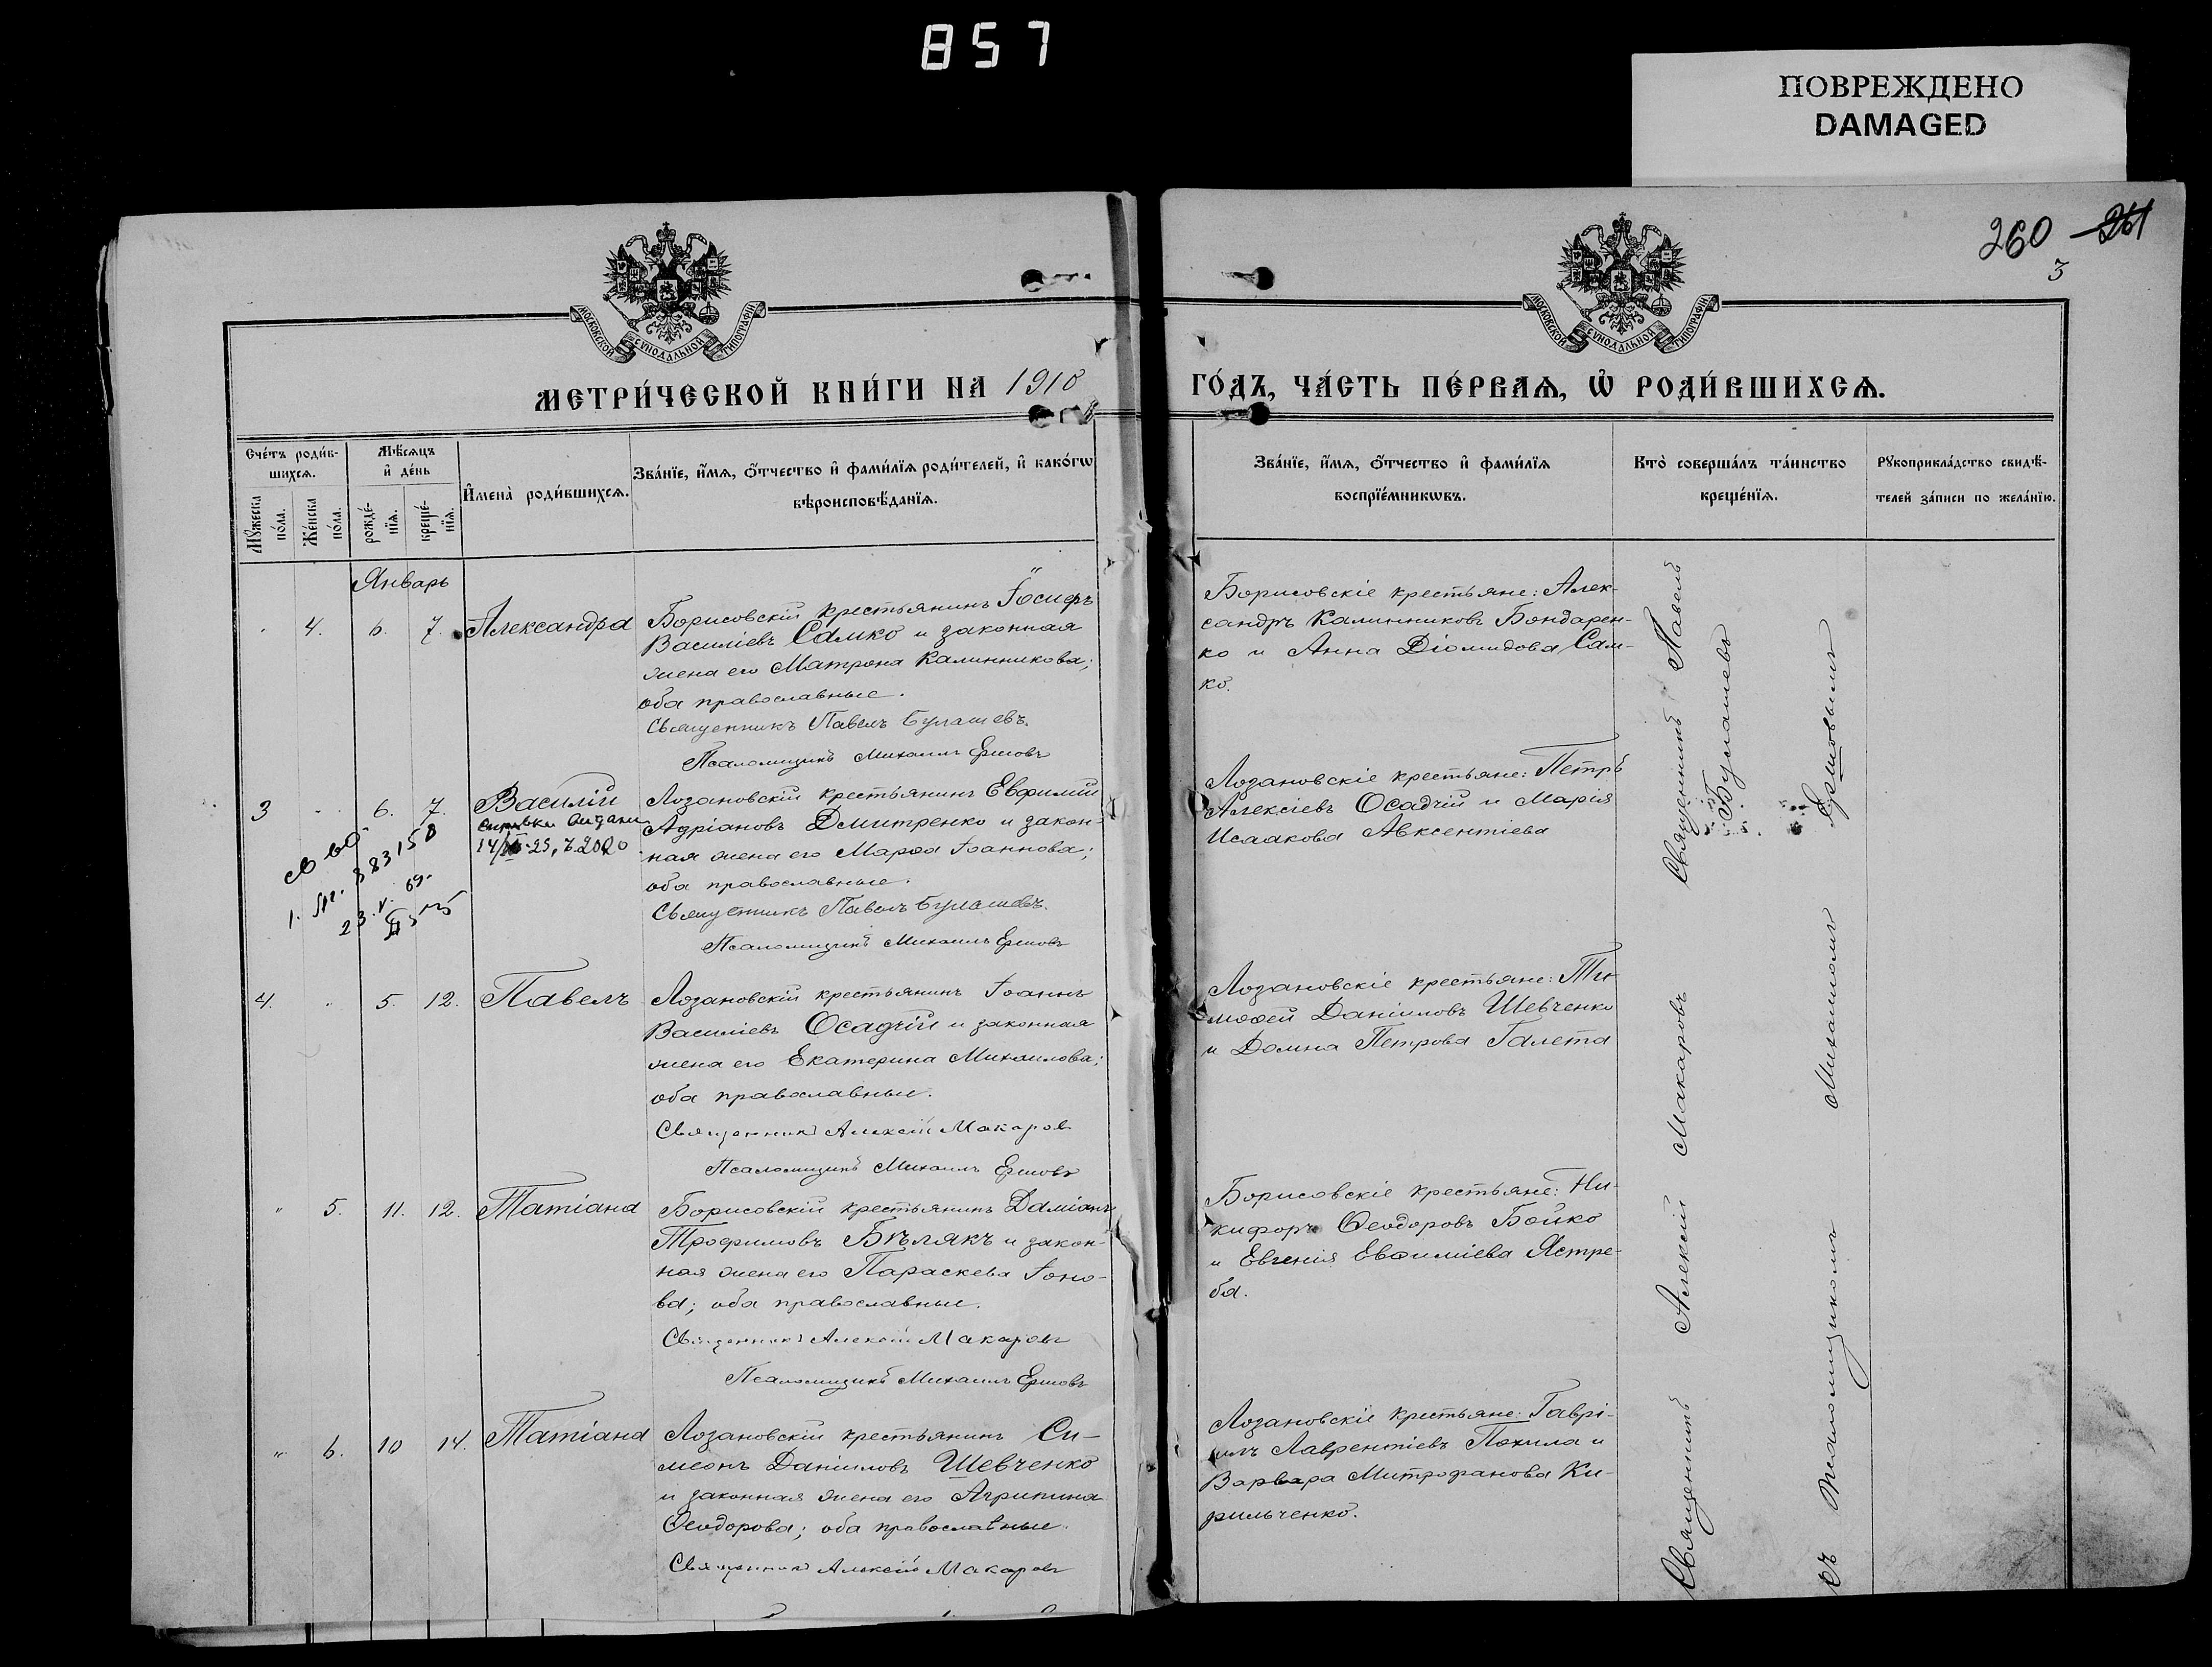 857
ПОВРЕЖДЕНО
DAMAGED
260 261
3
МОСКОВСКОЙ СѴНОДАЛЬНОЙ ТИПОГРАФІИ
МОСКОВСКОЙ СѴНОДАЛЬНОЙ ТИПОГРАФІИ
МЕТРИ́ЧЕСКОЙ КНИ́ГИ НА 1910
ГО́ДЪ, ЧА́СТЬ ПЕ́РВАѦ, Ѡ҆ РОДИ́ВШИХСѦ.
Сче́тъ роди́в-
шихсѧ.
Мꙋ́жеска
по́ла.
Же́нска
по́ла.
Мѣ́сѧцъ
и҆ де́нь
рожде́-
нїѧ.
креще́-
нїѧ.
И҆мена̀ роди́вшихсѧ.
Зва́нїе, и҆́мѧ, ѻ҆́тчество и҆ фами́лїѧ роди́телей, и҆ како́гѡ
вѣроисповѣ́данїѧ.
Зва́нїе, и҆́мѧ, ѻ҆́тчество и҆ фами́лїѧ
воспрїе́мникѡвъ.
Кто̀ соверша́лъ та́инство
креще́нїѧ.
Рꙋкоприкла́дство свидѣ́-
телей за́писи по жела́нїю.
Январь
" 4. 6. 7. Александра
Борисовскій крестьянинъ Іосифъ
Василіевъ Самко и законная
жена его Матрона Калинникова;
оба православные.
Священникъ Павелъ Булашевъ.
Псаломщикъ Михаилъ Ершовъ
Борисовскіе крестьяне: Алек-
сандръ Калинниковъ Бондарен-
ко и Анна Діомидова Сам-
ко.
3 " 6. 7. Василій
справка выдана
14/ 25, 7.2020
883158
1.
23.V. 69.
Лозановскій крестьянинъ Евфимій
Адріановъ Дмитренко и закон-
ная жена его Марѳа Іоаннова;
оба православные.
Священникъ Павелъ Булашевъ.
Псаломщикъ Михаилъ Ершовъ
Лозановскіе крестьяне: Петръ
Алексіевъ Осадчій и Марія
Исаакова Авксентіева
4. " 5. 12. Павелъ
Лозановскій крестьянинъ Іоаннъ
Василіевъ Осадчій и законная
жена его Екатерина Михаилова;
оба православные.
Священникъ Алексій Макаровъ
Псаломщикъ Михаилъ Ершовъ
Лозановскіе крестьяне: Ти-
моѳей Даніиловъ Шевченко
и Домна Петрова Галета
" 5. 11. 12. Татіана
Борисовскій крестьянинъ Даміанъ
Трофимовъ Бѣлякъ и закон-
ная жена его Параскева Іоно-
ва; оба православные.
Священникъ Алексій Макаровъ
Псаломщикъ Михаилъ Ершовъ
Борисовскіе крестьяне: Ни-
кифоръ Ѳеодоровъ Бойко
и Евгенія Евѳиміева Ястре-
ба.
" 6. 10 14. Татіана
Лозановскій крестьянинъ Си-
меонъ Даніиловъ Шевченко
и законная жена его Агрипина
Ѳеодорова; оба православные.
Священникъ Алексій Макаровъ
Лозановскіе крестьяне: Гаврі-
илъ Лаврентіевъ Похила и
Варвара Митрофанова Ки-
рильченко.
Священникъ Алексій Макаровъ Священникъ Павелъ
Булашевъ
съ Псаломщикомъ Михаиломъ Ершовымъ